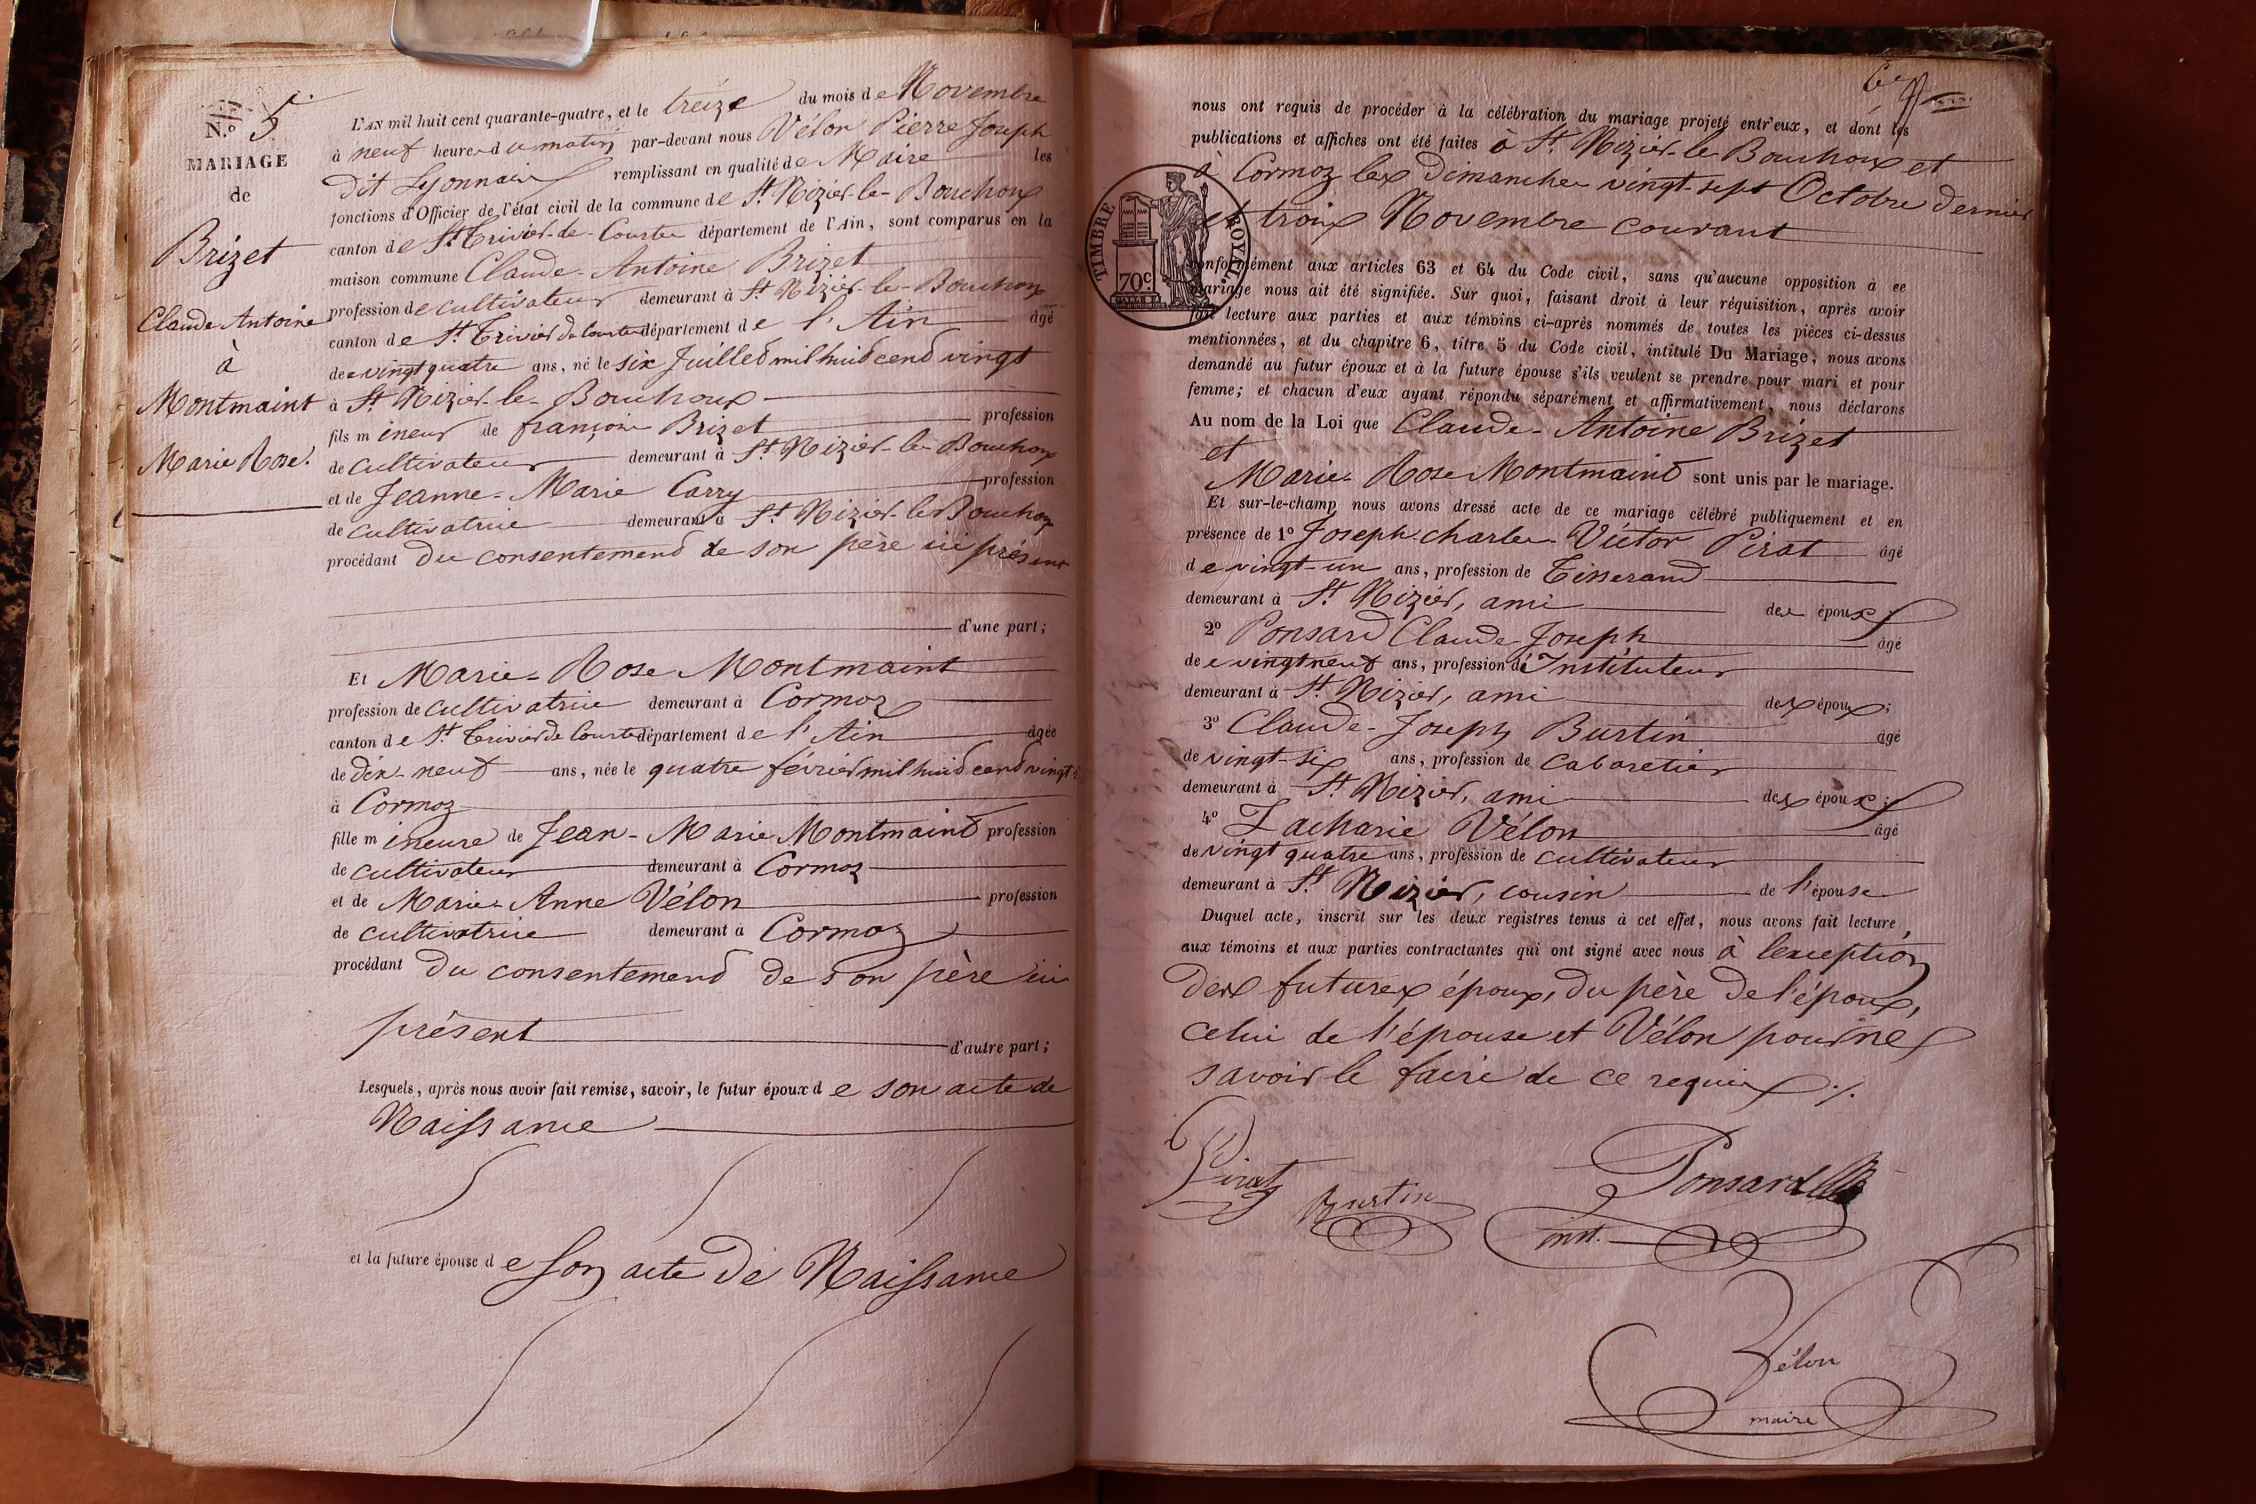 N.º 5
MARIAGE
de
Brizet
Claude Antoine
à
Montmaint
Marie Rose.
L'AN mil huit cent quarante-quatre, et le treize du mois de Novembre
à neuf heures du matin par-devant nous Vélon Pierre Joseph
dit Lyonnais remplissant en qualité de Maire les
fonctions d'Officier de l'état civil de la commune de St Nizier-le-Bouchoux
canton de St Trivier-de-Courtes département de l'Ain, sont comparus en la
maison commune Claude-Antoine Brizet
profession de cultivateur demeurant à St Nizier-le-Bouchoux
canton de St Trivier de Courtes département de l'Ain âgé
de vingt quatre ans, né le six Juillet mil huit cent vingt
à St Nizier-le-Bouchoux
fils mineur de françois Brizet profession
de cultivateur demeurant à St Nizier-le-Bouchoux
et de Jeanne-Marie Carry profession
de cultivatrice demeurant à St Nizier-le-Bouchoux
procédant du consentement de son père ici présent
d'une part;
Et Marie-Rose Montmaint
profession de cultivatrice demeurant à Cormoz
canton de St Trivier de Courtes département de l'Ain âgée
de dix-neuf ans, née le quatre février mil huit cent vingt
à Cormoz
fille mineure de Jean-Marie Montmaint profession
de cultivateur demeurant à Cormoz
et de Marie-Anne Vélon profession
de cultivatrice demeurant à Cormoz
procédant du consentement de son père ici
présent
d'autre part;
Lesquels, après nous avoir fait remise, savoir, le futur époux de son acte de
Naissance
et la future épouse de son acte de Naissance
nous ont requis de procéder à la célébration du mariage projeté entr'eux, et dont les
publications et affiches ont été faites à St Nizier-le-Bouchoux et
à Cormoz les Dimanches vingt-sept Octobre dernier
et trois Novembre courant
TIMBRE ROYAL.
70c.
conformément aux articles 63 et 64 du Code civil, sans qu'aucune opposition à ce
mariage nous ait été signifiée. Sur quoi, faisant droit à leur réquisition, après avoir
fait lecture aux parties et aux témoins ci-après nommés de toutes les pièces ci-dessus
mentionnées, et du chapitre 6, titre 5 du Code civil, intitulé Du Mariage, nous avons
demandé au futur époux et à la future épouse s'ils veulent se prendre pour mari et pour
femme; et chacun d'eux ayant répondu séparément et affirmativement, nous déclarons
Au nom de la Loi que Claude-Antoine Brizet
et
Marie-Rose Montmaint sont unis par le mariage.
Et sur-le-champ nous avons dressé acte de ce mariage célébré publiquement et en
présence de 1º Joseph-charles-Victor Pirat âgé
de vingt-un ans, profession de Tisserand
demeurant à St Nizier, ami des époux;
2º Ponsard Claude Joseph âgé
de vingt neuf ans, profession d'Instituteur
demeurant à St Nizier, ami des époux;
3º Claude-Joseph Burtin âgé
de vingt-six ans, profession de cabaretier
demeurant à St Nizier, ami des époux;
4º Zacharie Vélon âgé
de vingt quatre ans, profession de cultivateur
demeurant à St Nizier, cousin de l'épouse
Duquel acte, inscrit sur les deux registres tenus à cet effet, nous avons fait lecture
aux témoins et aux parties contractantes qui ont signé avec nous à l'exception
des futures époux, du père de l'époux,
celui de l'épouse et Vélon pour ne
savoir le faire de ce requis ./.
Pirat
Burtin
Ponsard
inst.
Vélon
maire